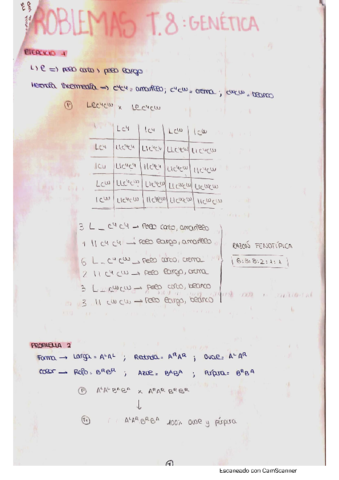 PROBLEMAS T.8: GENÉTICA
EJERCICIO 1
L > l => pelo corto > pelo largo
Herencia intermedia -> CʸCʸ = amarillo; CʸCʷ = crema; CʷCʷ = blanco
P LlCʸCʷ x LlCʸCʷ
LCʸ lCʸ LCʷ lCʷ
LCʸ LLCʸCʸ LlCʸCʸ LLCʸCʷ LlCʸCʷ
lCʸ LlCʸCʸ llCʸCʸ LlCʸCʷ llCʸCʷ
LCʷ LLCʸCʷ LlCʸCʷ LLCʷCʷ LlCʷCʷ
lCʷ LlCʸCʷ llCʸCʷ LlCʷCʷ llCʷCʷ
3 L _ CʸCʸ -> Pelo corto, amarillo
1 ll CʸCʸ -> Pelo largo, amarillo
6 L _ CʸCʷ -> Pelo corto, crema
2 ll CʸCʷ -> Pelo largo, crema
3 L _ CʷCʷ -> Pelo corto, blanco
ll CʷCʷ -> Pelo largo, blanco
RATIO FENOTÍPICA
6:3:3:2:1:1
PROBLEMA 2
Forma -> Larga = AᴸAᴸ ; Redonda = AᴿAᴿ ; Oval = AᴸAᴿ
Color -> Rojo = BᴿBᴿ ; Azul = BᵃBᵃ ; Púrpura = BᴿBᵃ
P AᴸAᴸBᴿBᴿ x AᴿAᴿBᵃBᵃ
↓
F₁ AᴸAᴿBᴿBᵃ 100% oval y púrpura
Escaneado con CamScanner